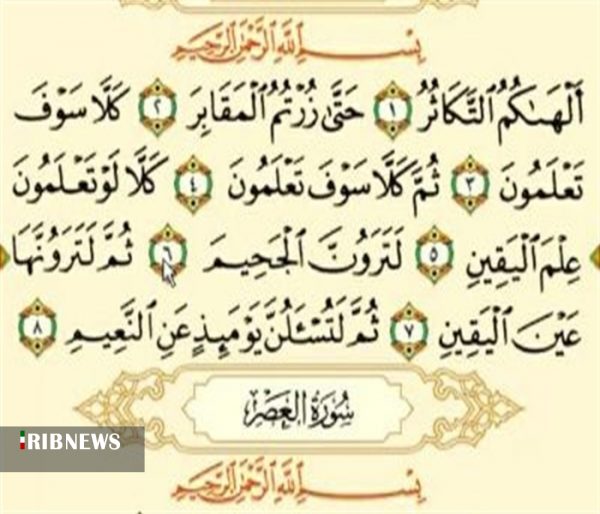 بِسْمِ ٱللَّهِ ٱلرَّحْمَٰنِ ٱلرَّحِيمِ
أَلْهَىٰكُمُ ٱلتَّكَاثُرُ ١ حَتَّىٰ زُرْتُمُ ٱلْمَقَابِرَ ٢ كَلَّا سَوْفَ
تَعْلَمُونَ ٣ ثُمَّ كَلَّا سَوْفَ تَعْلَمُونَ ٤ كَلَّا لَوْ تَعْلَمُونَ
عِلْمَ ٱلْيَقِينِ ٥ لَتَرَوُنَّ ٱلْجَحِيمَ ٦ ثُمَّ لَتَرَوُنَّهَا
عَيْنَ ٱلْيَقِينِ ٧ ثُمَّ لَتُسْـَٔلُنَّ يَوْمَئِذٍ عَنِ ٱلنَّعِيمِ ٨
سُورَةُ الْعَصْرِ
IRIBNEWS
بِسْمِ ٱللَّهِ ٱلرَّحْمَٰنِ ٱلرَّحِيمِ